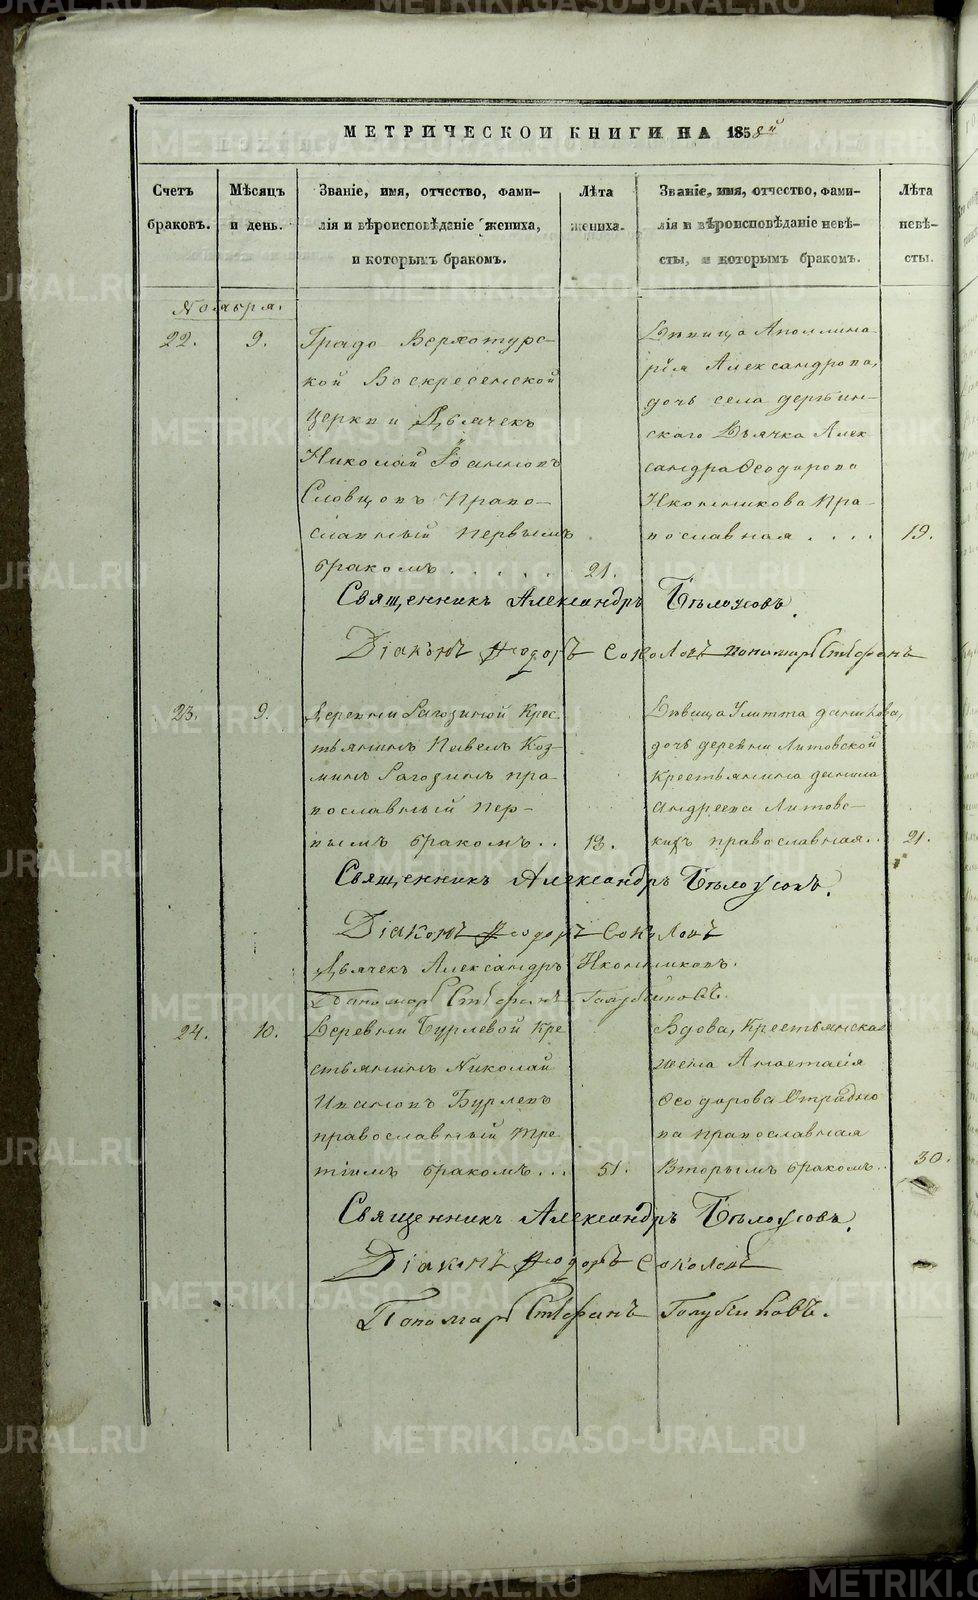 МЕТРИЧЕСКОЙ КНИГИ НА 1858й
Счетъ браковъ.
Мѣсяцъ и день.
Званіе, имя, отчество, фами-
лія и вѣроисповѣданіе жениха,
и которымъ бракомъ.
Лѣта жениха.
Званіе, имя, отчество, фами-
лія и вѣроисповѣданіе невѣ-
сты, и которымъ бракомъ.
Лѣта невѣ-
сты.
Ноября.
22. 9.
Градо Верхотурс-
кой Воскресенской
Церкви Дьячекъ
Николай Іоанновъ
Словцовъ Право-
славный первымъ
бракомъ . . . . . . 21.
Дѣвица Аполлина-
рія Александрова,
дочь села Дерябин-
скаго Дьячка Алек-
сандра Ѳеодорова
Иконникова Пра-
вославная . . . . 19.
Священникъ Александръ Бѣлоусовъ.
Діаконъ Ѳеодоръ Соколовъ Пономарь Стефанъ
23. 9.
Деревни Рагозиной Крес-
тьянинъ Павелъ Коз-
минъ Рагозинъ пра-
вославный пер-
вымъ бракомъ . . 18.
Дѣвица Улитта Данилова,
дочь деревни Литовской
Крестьянина Данила
Андреева Литовс-
кихъ православная . . 21.
Священникъ Александръ Бѣлоусовъ.
Діаконъ Ѳеодоръ Соколовъ
Дьячекъ Александръ Иконниковъ.
Пономарь Стефанъ Голубчиковъ.
24. 10.
Деревни Бурлевой Кре-
стьянинъ Николай
Ивановъ Бурлевъ
православный тре-
тіимъ бракомъ . . . 51.
Вдова, Крестьянская
жена Анастасія
Ѳеодорова
православная
Вторымъ бракомъ . . 30.
Священникъ Александръ Бѣлоусовъ.
Діаконъ Ѳеодоръ Соколовъ
Пономарь Стефанъ Голубчиковъ.
METRIKI.GASO-URAL.RU